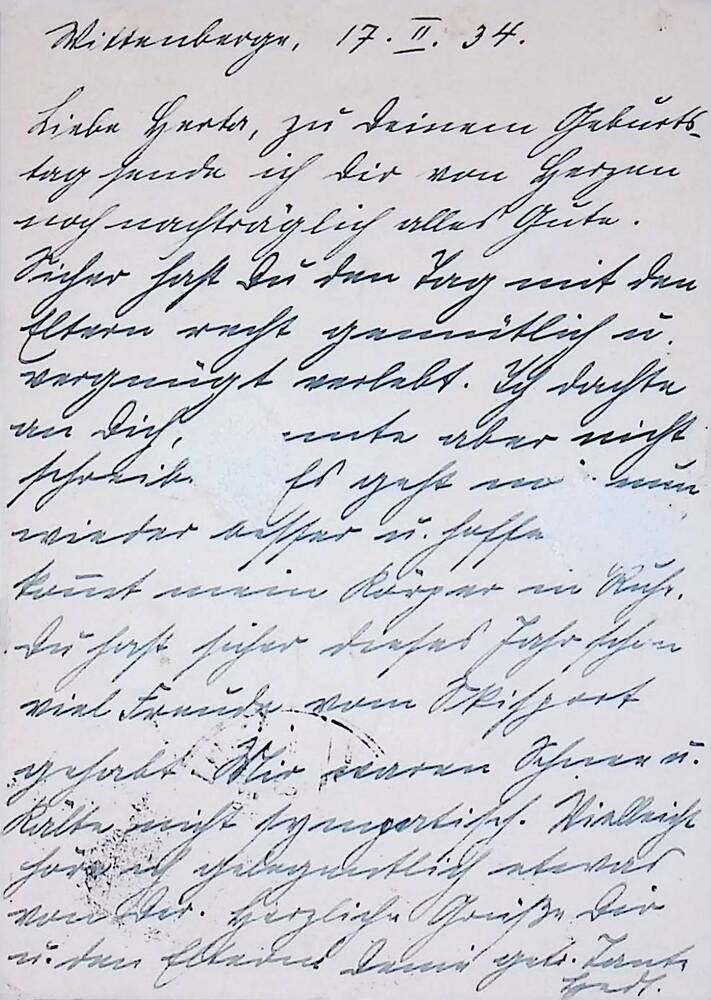 Wittenberge, 17. II. 34.
Liebe Herta, zu Deinem Geburts-
tag sende ich Dir von Herzen
noch nachträglich alles Gute.
Sicher hast Du den Tag mit den
Eltern recht gemütlich u.
vergnügt verlebt. Ich dachte
an Dich, nnte aber nicht
schreib. Es geht mi nun
wieder besser u. hoffe
kommt mein Körper in Ruhe.
Du hast sicher dieses Jahr schon
viel Freude vom Skisport
gehabt. Mir waren Schnee u.
Kälte nicht sympatisch. Vielleicht
höre ich gelegentlich etwas
von Dir. Herzliche Grüße Dir
u. den Eltern Deine getr. Tante